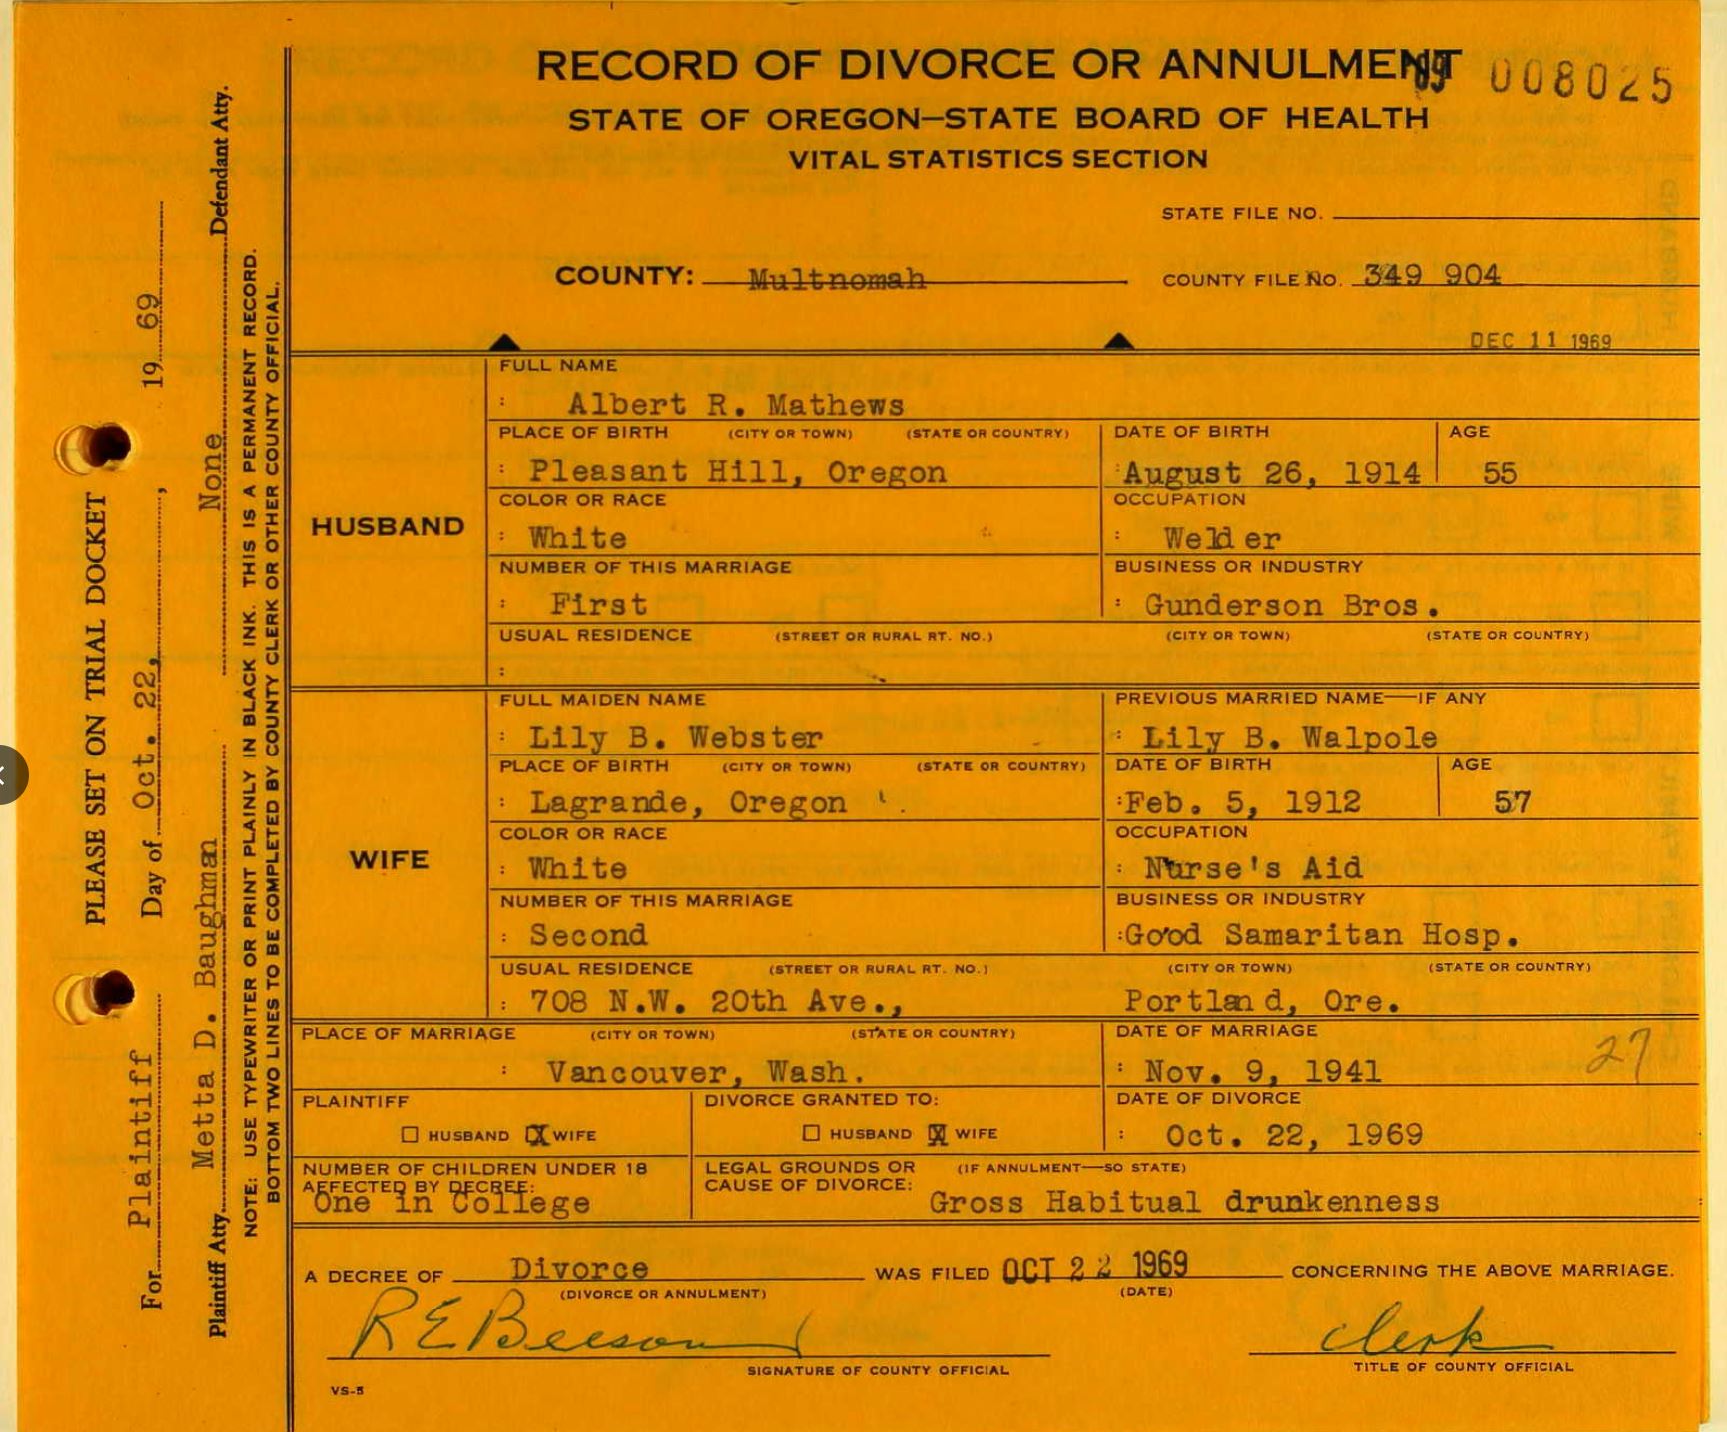 RECORD OF DIVORCE OR ANNULMENT 69 008025
STATE OF OREGON—STATE BOARD OF HEALTH
VITAL STATISTICS SECTION
STATE FILE NO.
COUNTY: Multnomah COUNTY FILE No. 349 904
DEC 11 1969
HUSBAND
FULL NAME
: Albert R. Mathews
PLACE OF BIRTH (CITY OR TOWN) (STATE OR COUNTRY) DATE OF BIRTH AGE
: Pleasant Hill, Oregon :August 26, 1914 55
COLOR OR RACE OCCUPATION
: White : Welder
NUMBER OF THIS MARRIAGE BUSINESS OR INDUSTRY
: First : Gunderson Bros.
USUAL RESIDENCE (STREET OR RURAL RT. NO.) (CITY OR TOWN) (STATE OR COUNTRY)
:
WIFE
FULL MAIDEN NAME PREVIOUS MARRIED NAME—IF ANY
: Lily B. Webster : Lily B. Walpole
PLACE OF BIRTH (CITY OR TOWN) (STATE OR COUNTRY) DATE OF BIRTH AGE
: Lagrande, Oregon :Feb. 5, 1912 57
COLOR OR RACE OCCUPATION
: White : Nurse's Aid
NUMBER OF THIS MARRIAGE BUSINESS OR INDUSTRY
: Second :Good Samaritan Hosp.
USUAL RESIDENCE (STREET OR RURAL RT. NO.) (CITY OR TOWN) (STATE OR COUNTRY)
: 708 N.W. 20th Ave., Portland, Ore.
PLACE OF MARRIAGE (CITY OR TOWN) (STATE OR COUNTRY) DATE OF MARRIAGE
: Vancouver, Wash. : Nov. 9, 1941 27
PLAINTIFF DIVORCE GRANTED TO: DATE OF DIVORCE
☐ HUSBAND ☒ WIFE ☐ HUSBAND ☒ WIFE : Oct. 22, 1969
NUMBER OF CHILDREN UNDER 18 LEGAL GROUNDS OR (IF ANNULMENT—SO STATE)
AFFECTED BY DECREE: CAUSE OF DIVORCE:
One in College Gross Habitual drunkenness
A DECREE OF Divorce WAS FILED OCT 22 1969 CONCERNING THE ABOVE MARRIAGE.
(DIVORCE OR ANNULMENT) (DATE)
R E Beeson clerk
SIGNATURE OF COUNTY OFFICIAL TITLE OF COUNTY OFFICIAL
VS-5
PLEASE SET ON TRIAL DOCKET
For Plaintiff Day of Oct. 22, , 19 69
Plaintiff Atty. Metta D. Baughman None Defendant Atty.
NOTE: USE TYPEWRITER OR PRINT PLAINLY IN BLACK INK. THIS IS A PERMANENT RECORD.
BOTTOM TWO LINES TO BE COMPLETED BY COUNTY CLERK OR OTHER COUNTY OFFICIAL.